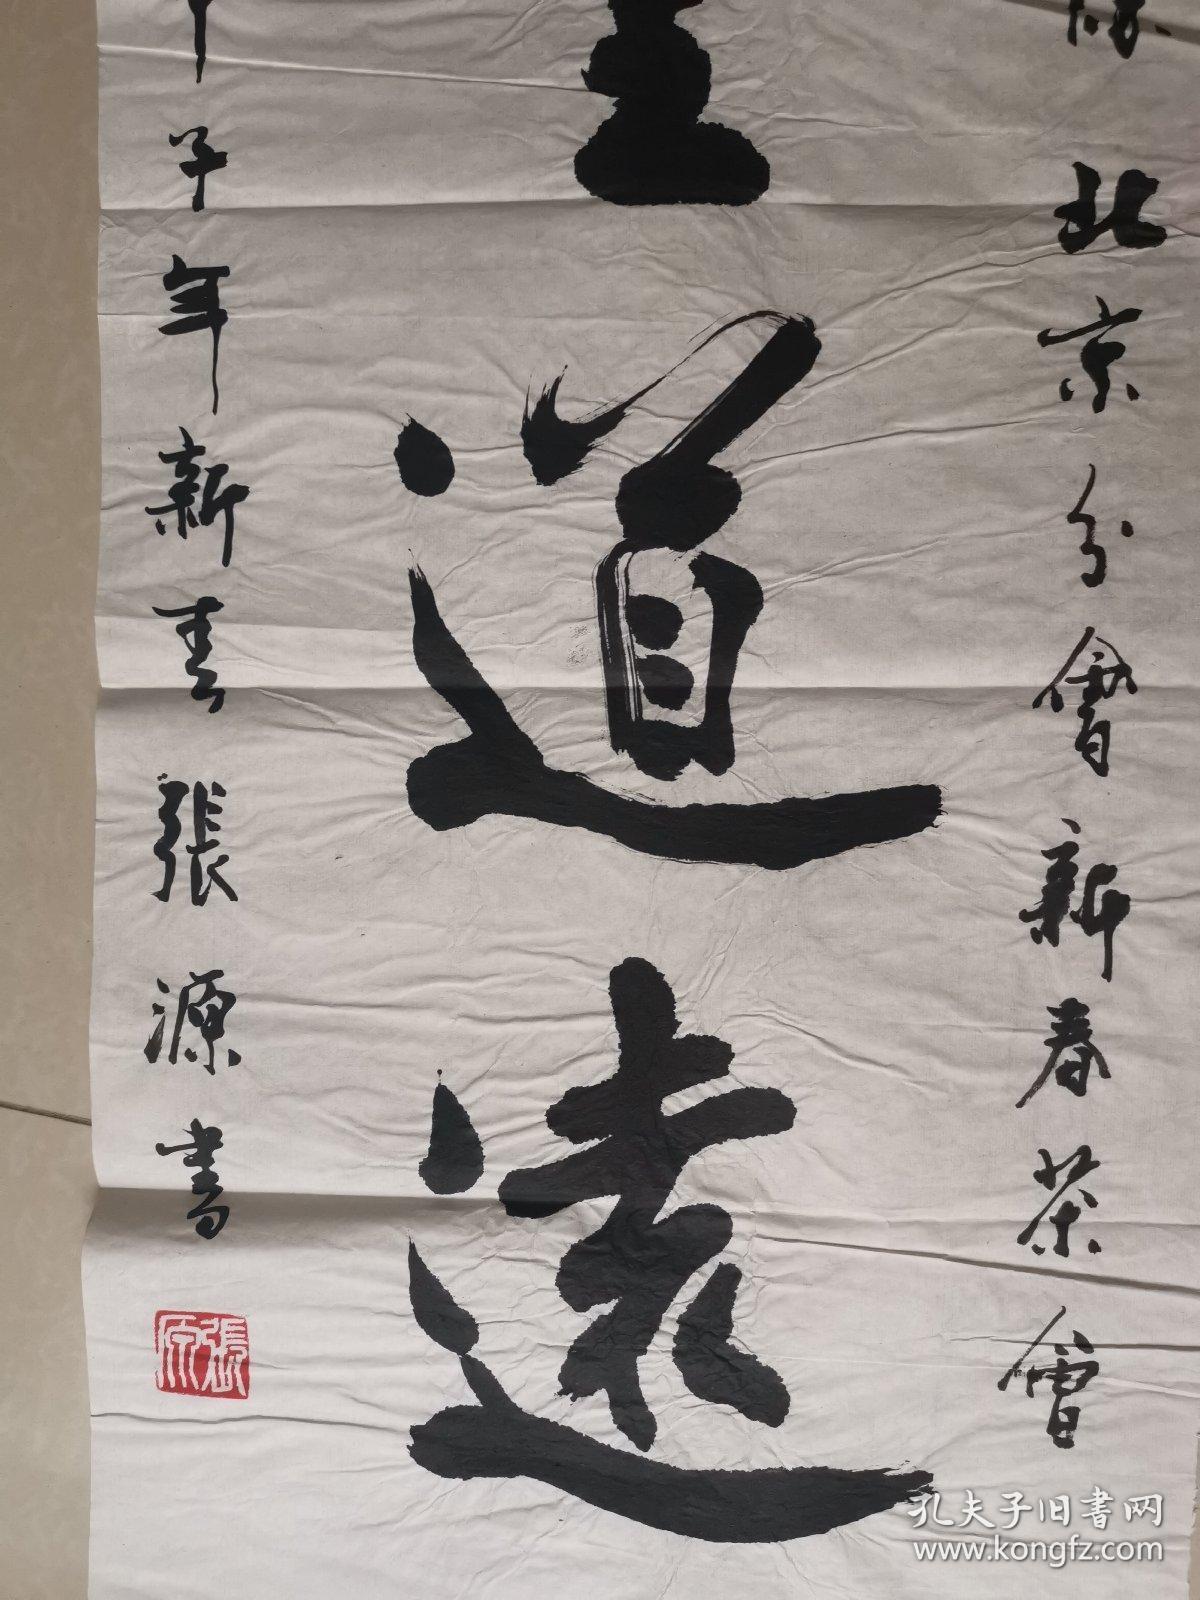 北京分會新春茶會
道遠
子年新春張源書
張源
孔夫子旧書网
www.kongfz.com